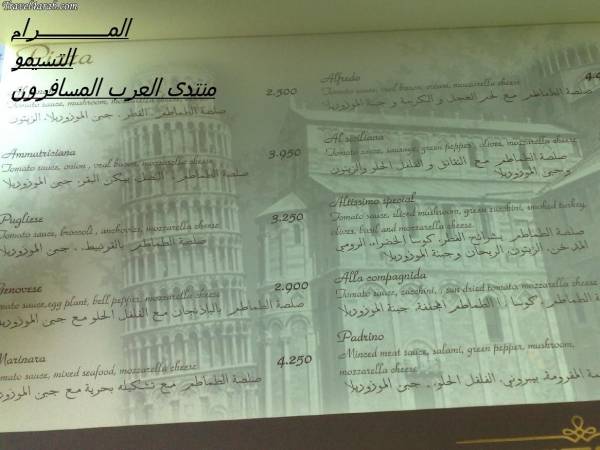 TravelArab.com
المــــــرام
التشيمو
منتدى العرب المسافرون
Pizza
2.500
Tomato sauce, mushroom, mozzarella cheese
صلصة الطماطم . الفطر . جبن الموزوريلا . الزيتون
Ammatriciana
3.950
Tomato sauce, onion, veal bacon, mozzarella cheese
صلصة الطماطم . البصل . بيكن البقر . جبن الموزوريلا
Pugliese
3.250
Tomato sauce, broccoli, anchovies, mozzarella cheese
صلصة الطماطم . بالقرنبيط . جبن الموزوريلا
Genovese
2.900
Tomato sauce, egg plant, bell pepper, mozzarella cheese
صلصة الطماطم بالباذنجان مع الفلفل الحلو مع جبن الموزوريلا
Marinara
4.250
Tomato sauce, mixed seafood, mozzarella cheese
صلصة الطماطم مع تشكيلة بحرية مع جبن الموزوريلا
Alfredo
Tomato sauce, veal bacon, cream, mozzarella cheese
صلصة الطماطم مع لحم العجل و الكريمة و جبنة الموزوريلا
Al siciliana
Tomato sauce, sausage, green pepper, olives, mozzarella cheese
صلصة الطماطم مع النقانق و الفلفل الحلو والزيتون
وجبن الموزوريلا
Altissimo special
Tomato sauce, sliced mushroom, green zucchini, smoked turkey,
olives, basil and mozzarella cheese
صلصة الطماطم بشرائح الفطر، كوسا الخضراء، الرومي
المدخن، الزيتون، الريحان وجبنة الموزوريلا
Alla compagnida
Tomato sauce, zucchini, sun dried tomato, mozzarella cheese
الطماطم، كوسا، الطماطم المجففة، جبنة الموزوريلا
Padrino
Minced meat sauce, salami, green pepper, mushroom,
mozzarella cheese
المفرومة، ببروني، الفلفل الحلو، جبن الموزوريلا